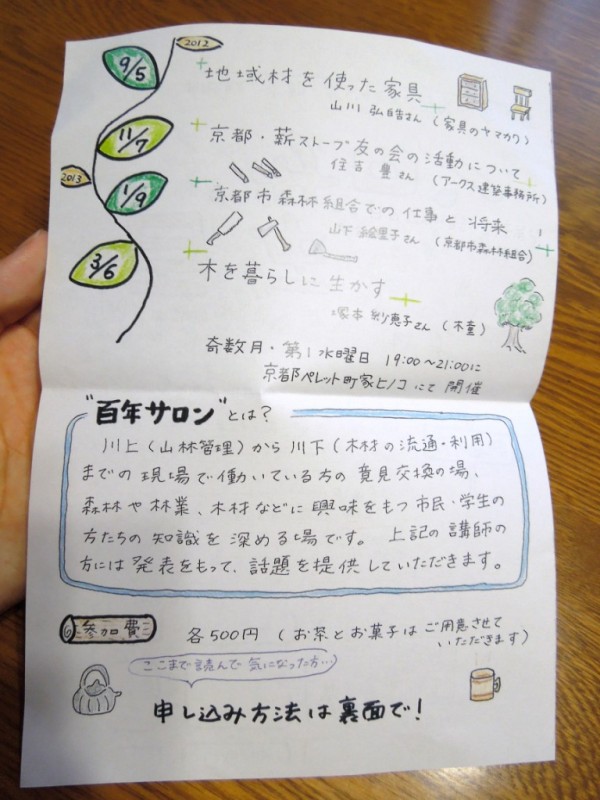 2012
9/5
地域材を使った家具
山川 弘皓さん(家具のヤマカワ)
11/7
京都・薪ストーブ友の会の活動について
住吉 豊さん(アークス建築事務所)
2013
1/9
京都市森林組合での仕事と将来
山下 絵里子さん(京都市森林組合)
3/6
木を暮らしに生かす
塚本 紗恵子さん(木童)
奇数月・第1水曜日 19:00〜21:00に
京都ペレット町家ヒノコにて開催
"百年サロン"とは?
川上(山林管理)から川下(木材の流通・利用)
までの現場で働いている方の意見交換の場、
森林や林業、木材などに興味をもつ市民・学生の
方たちの知識を深める場です。 上記の講師の
方には発表をもって、話題を提供していただきます。
参加費
各500円(お茶とお菓子はご用意させて
いただきます)
ここまで読んで気になった方…
申し込み方法は裏面で!